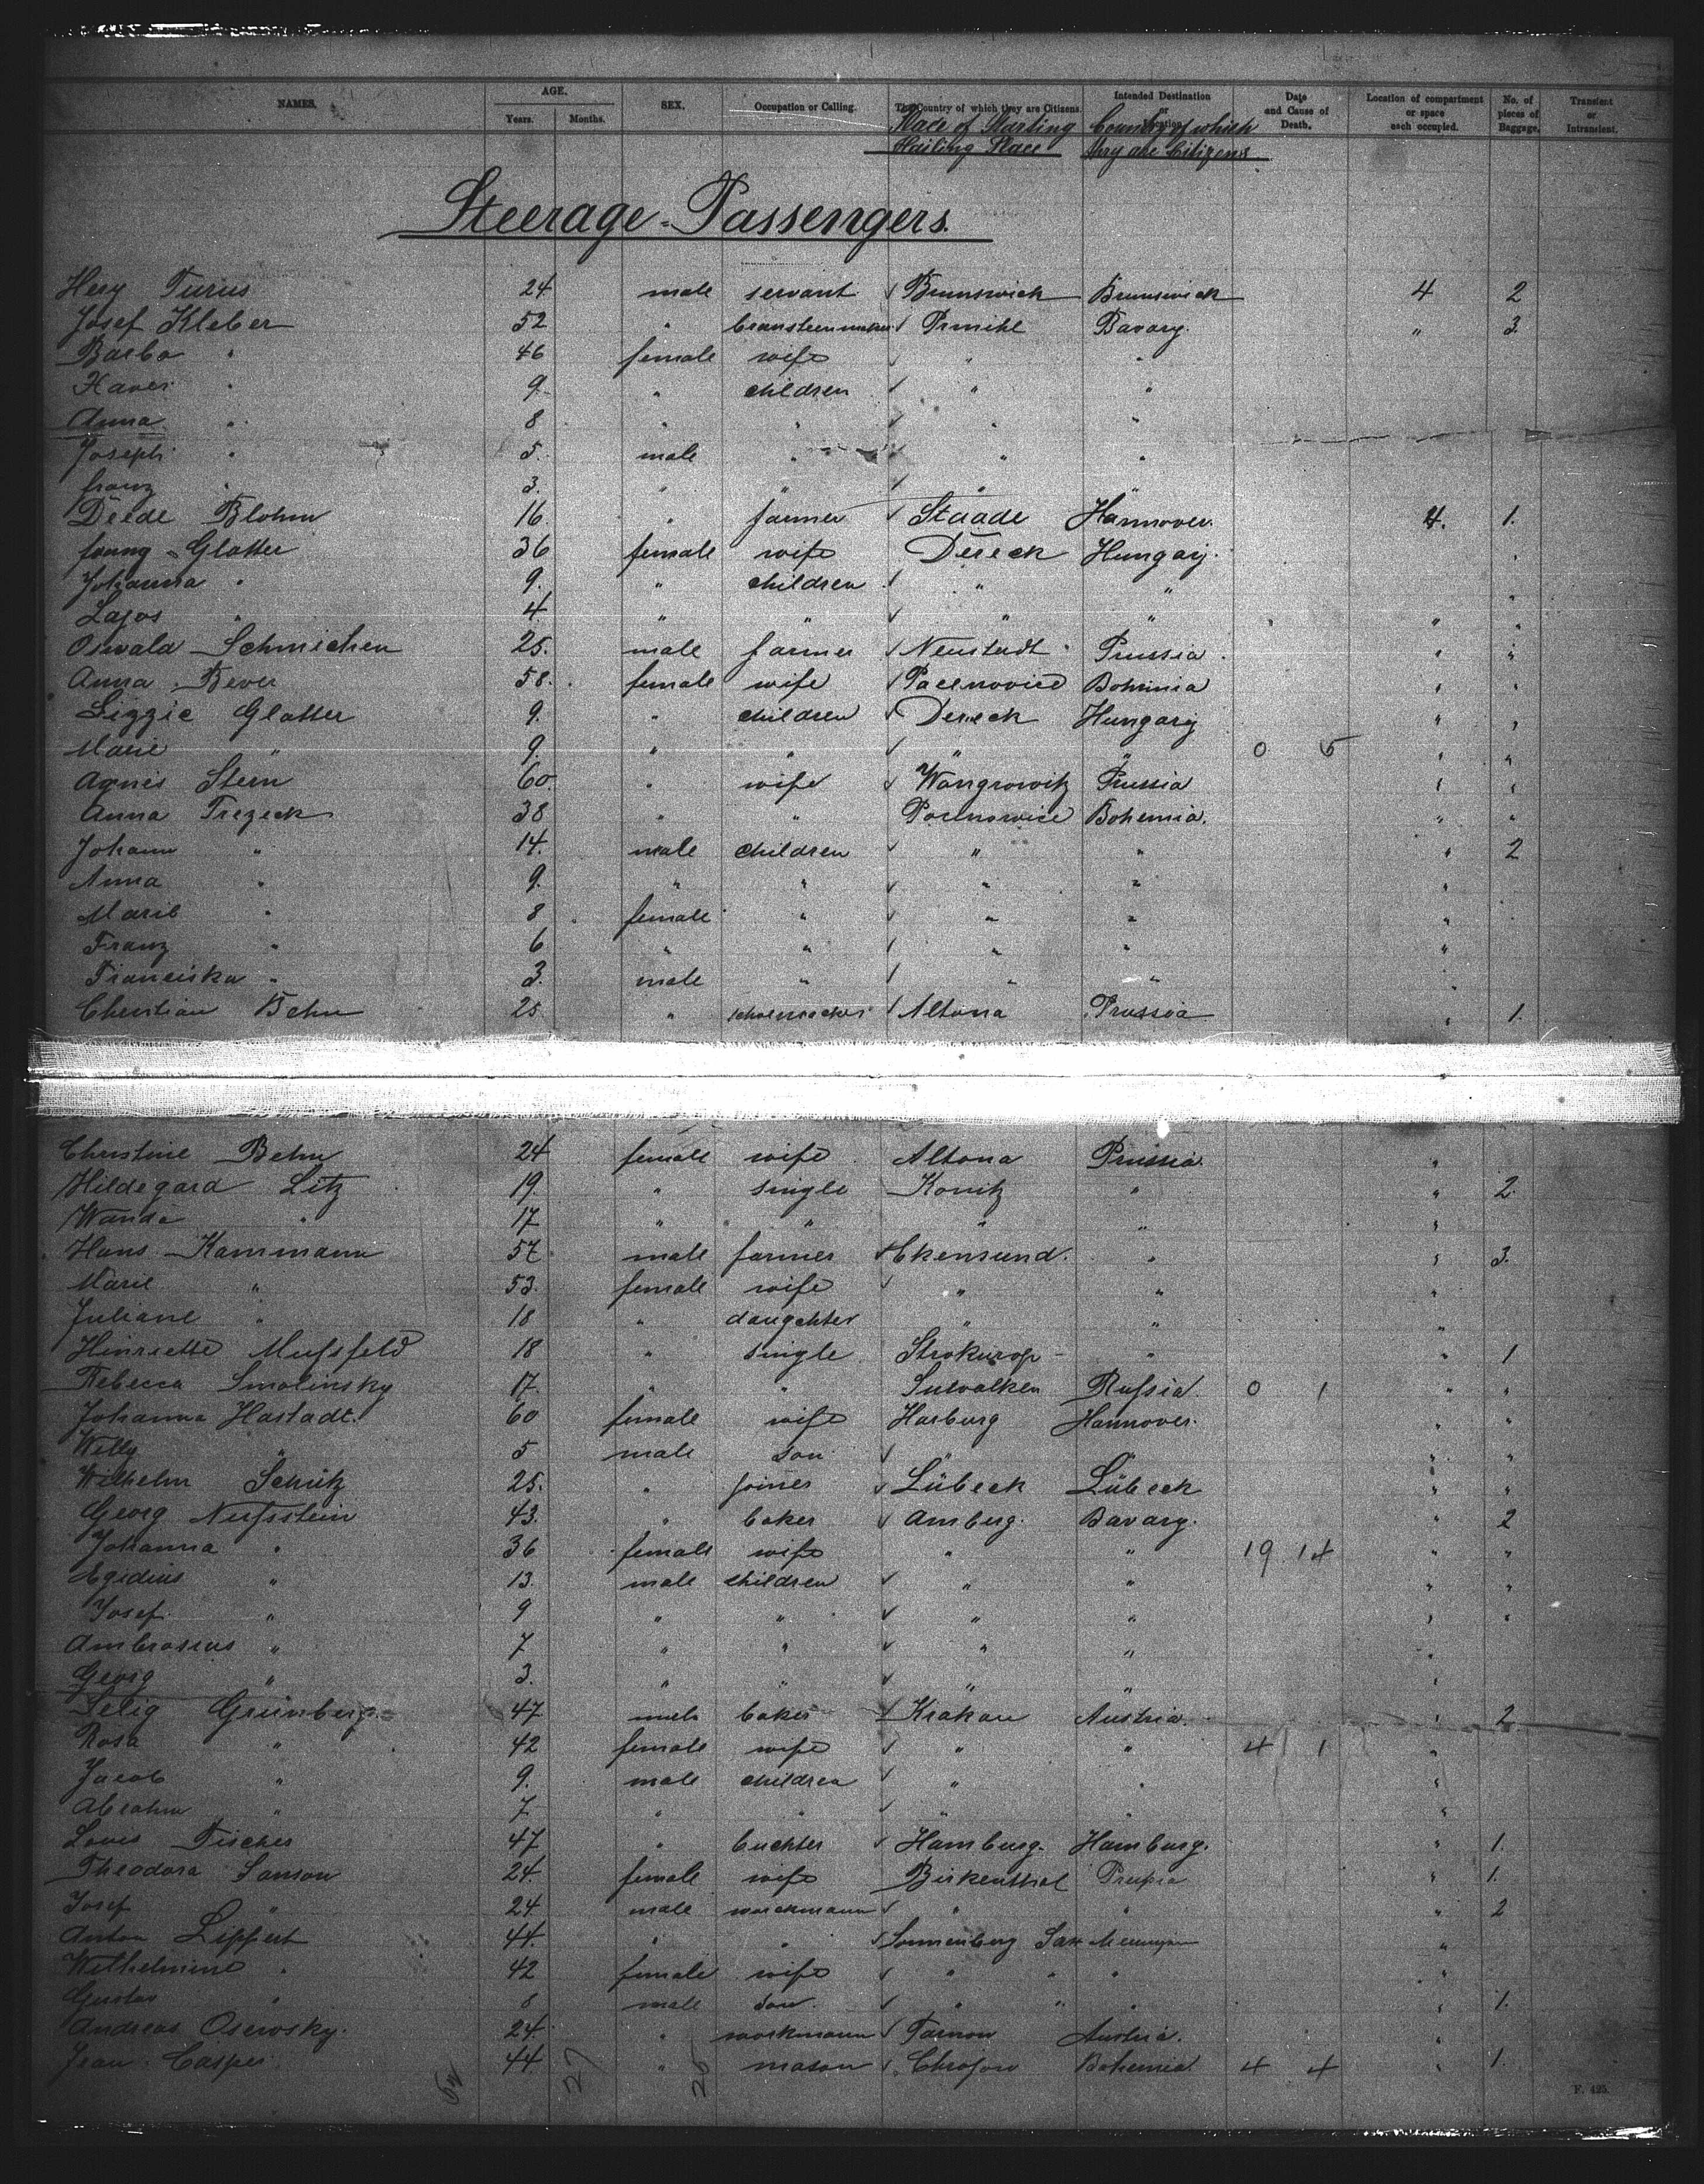 NAMES. AGE. Years. Months. SEX. Occupation or Calling. The Country of which they are Citizens. Intended Destination or Location. Date and Cause of Death. Location of compartment or space each occupied. No. of pieces of Baggage. Transient or Intransient.
Place of Starting Country of which
Hailing Place they are Citizens
Steerage-Passengers.
Hery Turius 24 male servant ✓ Brunswick Brunswick 4 2
Josef Kleber 52 " ✓ Bavary. " 3.
Barba " 46 female wife ✓ " "
Xaver " 9. " children ✓ " "
Anna " 8 " " ✓ " "
Joseph " 5. male " ✓ " "
franz " 3. " " ✓ " "
Diede Blohm 16. " farmer ✓ Staade Hannover. 4. 1.
Glatter 36 female wife Dereck Hungary.
Johanna " 9. " children ✓ " " "
Lajos " 4. " " ✓ " " " "
Oswald Schmichen 25. male farmer ✓ Neustadt Prussia " "
Anna Bever 58. female wife ✓ Bohemia " "
Lizzie Glatter 9. " children ✓ Dereck Hungary " "
Marie " 9. " " ✓ " " 0 5 " "
Agnes Stern 60. " wife ✓ Wongrowitz Prussia " "
Anna Trezeck 38 " " Bohemia. " "
Johann " 14. male children ✓ " " " 2
Anna " 9. " " ✓ " " "
Marie " 8 female " ✓ " " "
Franz " 6 " " ✓ " " "
Franciska " 3. male " ✓ " " "
Christian Behn 25 " schoemacker ✓ Altona Prussia " 1.
Christine Behn 24 female wife Altona Prussia "
Hildegard Litz 19. " single Konitz " " 2.
Wanda " 17 " " " " "
Hans Kammann 57 male farmer ✓ Ekensund. " " 3.
Marie " 53. female wife ✓ " " "
Juliane " 18 " daugchter " " "
Henriette Mussfeld 18 " single " " 1
Rebecca Smolinsky 17. " " Suwalken Russia 0 1 " "
Johanna Hastadt. 60 female wife Harburg Hannover. " "
Willy " 5 male son ✓ " " " "
Wilhelm Schütz 25. " joiner ✓ Lübeck Lübeck " "
Georg Nussstein 43. " baker ✓ Amberg. Bavary. " 2
Johanna " 36 female wife " " 19 14 " "
Egidius " 13. male children ✓ " " " "
Josef " 9 " " ✓ " " " "
Ambrosius " 7 " " ✓ " " "
Georg " 3. " " ✓ " " "
Selig Grünberg. 47 male baker ✓ Krakau Austria. " 2
Rosa " 42 female wife ✓ " " 4 1 "
Jacob " 9. male children ✓ " " "
Abrahm " 7 " " ✓ " " "
Louis Fischer 47 " buchter ✓ Hamburg. Hamburg. " 1.
Theodora Sanson 24. female wife Birkenthal Prussia " 1.
Josef " 24 male workmann ✓ " " " 2
Anton Lippert 44. " " ✓ Sonnenberg Sax Meiningen "
Wilhelmine " 42 female wife ✓ " " " "
Gustav " 8 male son. ✓ " " " " 1.
Andreas Osewsky. 24. " workmann ✓ Tarnow Austria. "
Jean Casper 44. " mason ✓ Bohemia 4 4 " 1.
27
F. 425.